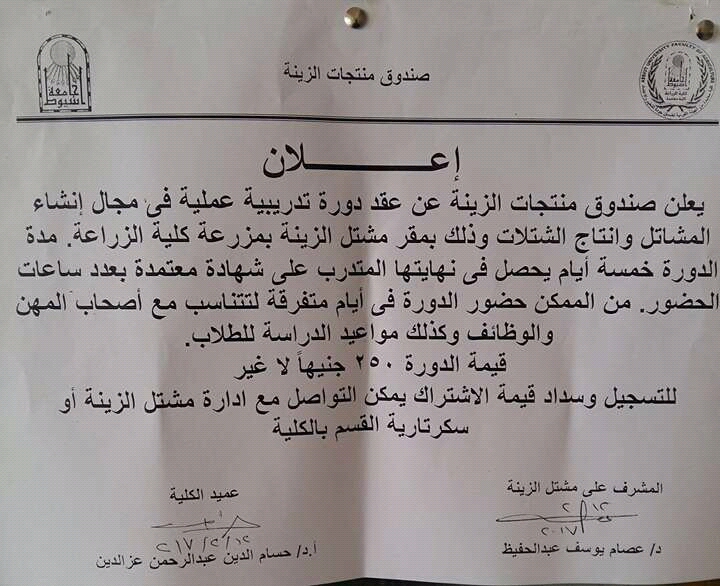 صندوق منتجات الزينة
جامعة أسيوط
إعــــــلان
يعلن صندوق منتجات الزينة عن عقد دورة تدريبية عملية فى مجال إنشاء
المشاتل وانتاج الشتلات وذلك بمقر مشتل الزينة بمزرعة كلية الزراعة. مدة
الدورة خمسة أيام يحصل فى نهايتها المتدرب على شهادة معتمدة بعدد ساعات
الحضور. من الممكن حضور الدورة فى أيام متفرقة لتتناسب مع أصحاب المهن
والوظائف وكذلك مواعيد الدراسة للطلاب.
قيمة الدورة ٢٥٠ جنيهاً لا غير
للتسجيل وسداد قيمة الاشتراك يمكن التواصل مع ادارة مشتل الزينة أو
سكرتارية القسم بالكلية
المشرف على مشتل الزينة
٢٠١٧
د/ عصام يوسف عبدالحفيظ
عميد الكلية
٢٠١٧/٢/١٢
أ.د/ حسام الدين عبدالرحمن عزالدين